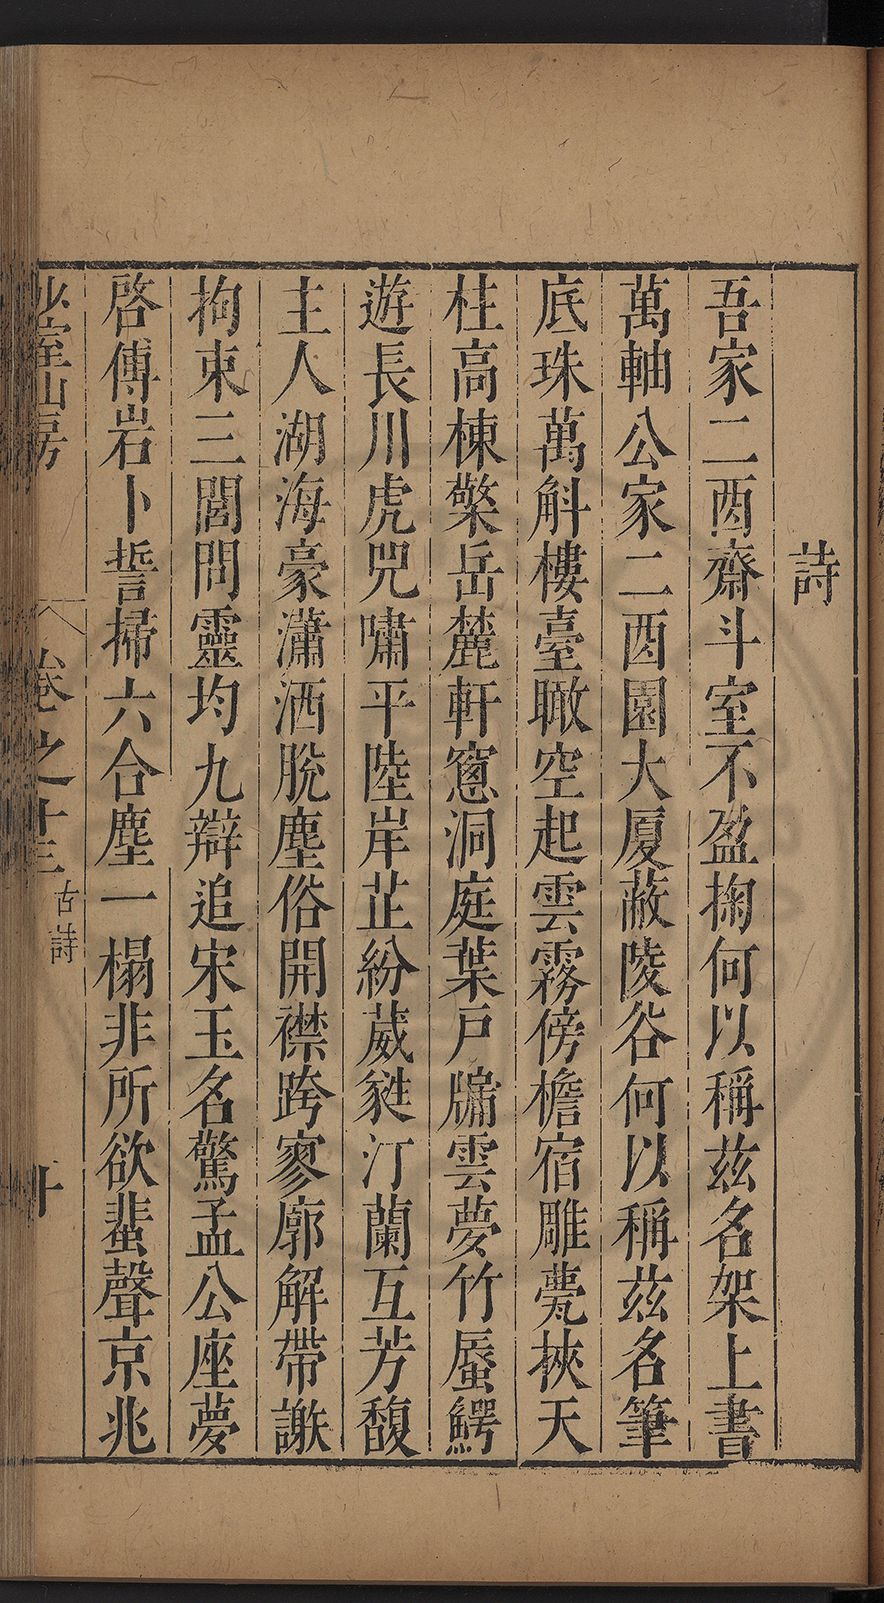 詩
吾家二酉齋斗室不盈掬何以稱茲名架上書
萬軸公家二酉園大厦蔽陵谷何以稱茲名筆
底珠萬斛樓臺瞰空起雲霧傍檐宿雕甍挾天
桂高棟檠岳麓軒窻洞庭葉戸牖雲夢竹蜃鰐
遊長川虎兕嘯平陸岸芷紛葳蕤汀蘭互芳馥
主人湖海豪瀟洒脫塵俗開襟跨寥廓解帶謝
拘束三閭問靈均九辯追宋玉名驚孟公座夢
啓傅岩卜誓掃六合塵一榻非所欲蜚聲京兆
少室山房
卷之十三
古詩
十